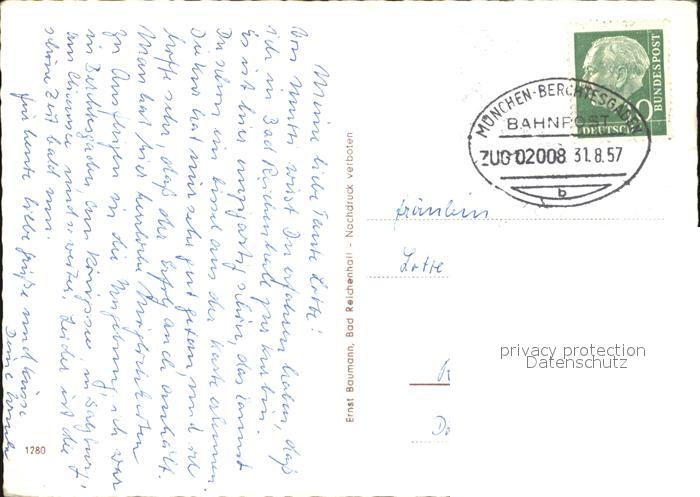 Meine liebe Tante Lotte!
Von Mutti wirst Du erfahren haben, daß
ich in Bad Reichenhall zur Kur bin.
Es ist hier einzigartig schön, das kannst
Du schon ein bissel aus der Karte erkennen.
Die Kur hat mir sehr gut getan und ich
hoffe sehr, daß der Erfolg auch anhält.
Man hat hier herrliche Möglichkeiten
zu Ausflügen in die Umgebung, ich war
in Berchtesgaden, am Königssee, in Salzburg,
am Chiemsee und so weiter. Leider ist die
schöne Zeit bald um.
Für heute liebe Grüße und Küsse
Deine
1280
Ernst Baumann, Bad Reichenhall - Nachdruck verboten
BUNDESPOST
DEUTSCHE
MÜNCHEN-BERCHTESGADEN
BAHNPOST
ZUG 02008 31.8.57
b
Fräulein
Lotte
privacy protection
Datenschutz